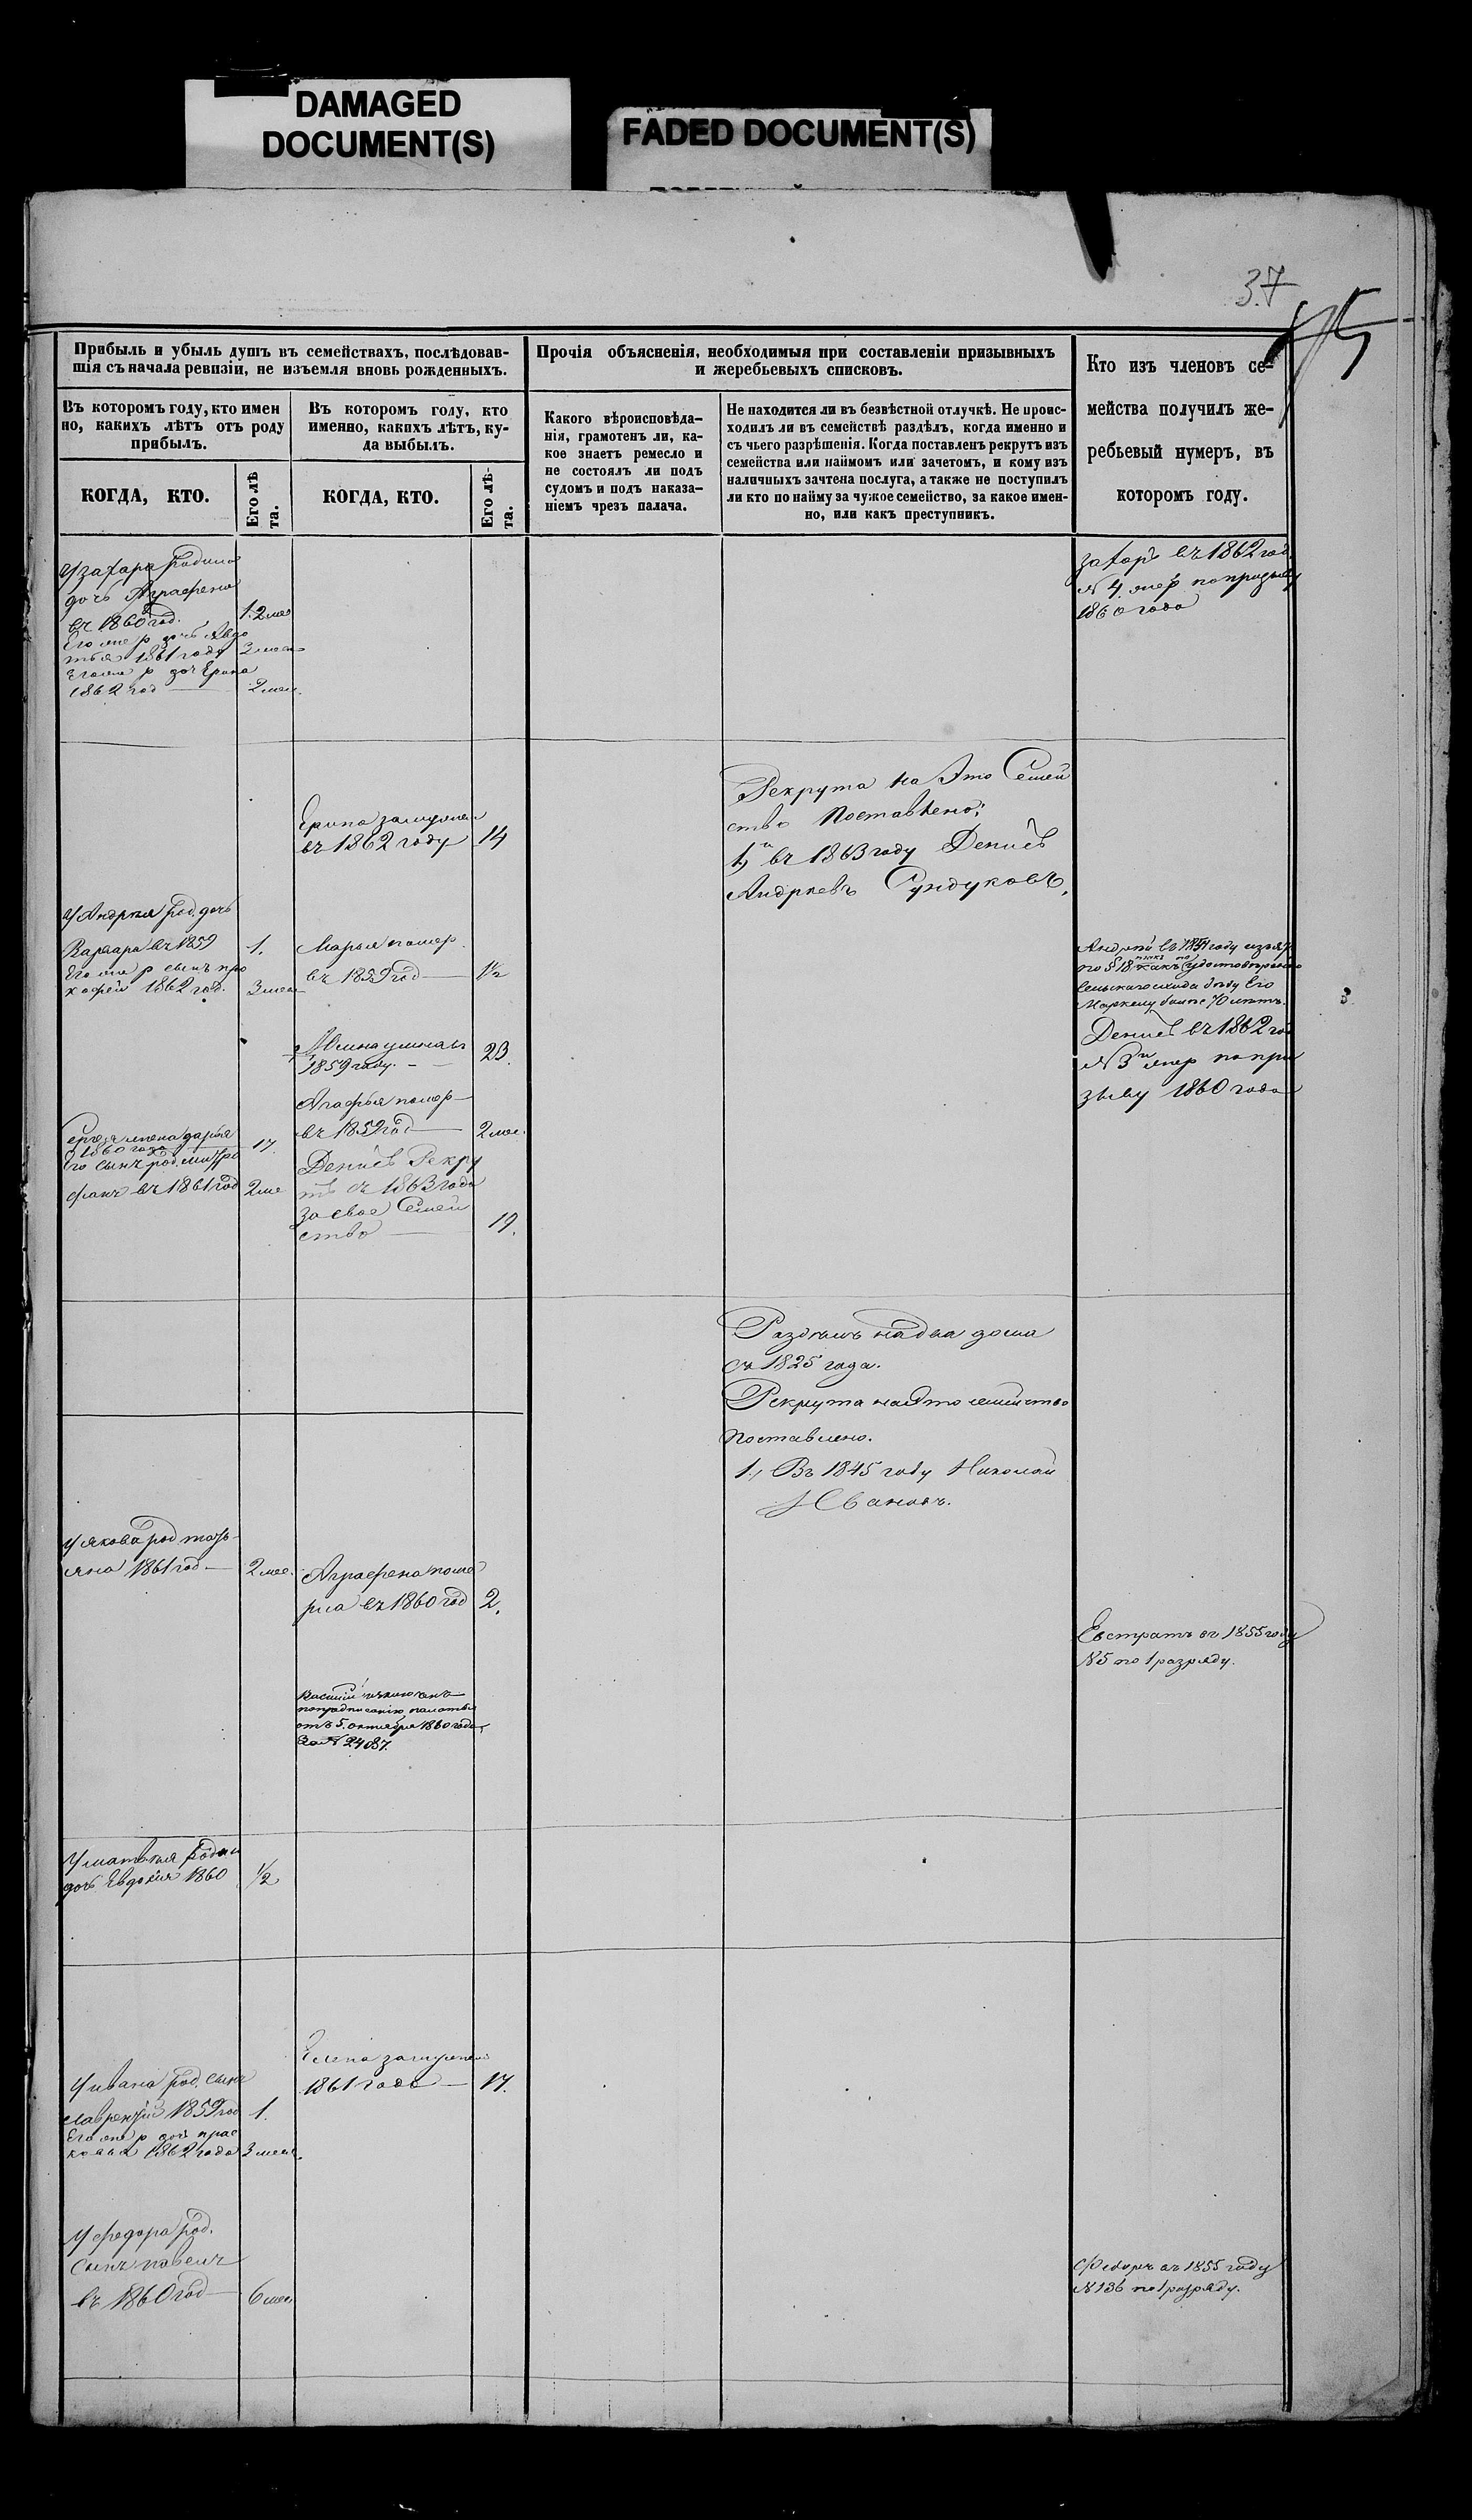 DAMAGED
DOCUMENT(S)
FADED DOCUMENT(S)
37
Прибыль и убыль душъ въ семействахъ, послѣдовав-
шія съ начала ревизіи, не изъемля вновь рожденныхъ.
Въ которомъ году, кто имен
но, какихъ лѣтъ отъ роду
прибылъ.
Въ которомъ году, кто
именно, какихъ лѣтъ, ку-
да выбылъ.
КОГДА, КТО.
Его лѣ
та.
КОГДА, КТО.
Его лѣ-
та.
Прочія объясненія, необходимыя при составленіи призывныхъ
и жеребьевыхъ списковъ.
Какого вѣроисповѣда-
нія, грамотенъ ли, ка-
кое знаетъ ремесло и
не состоялъ ли подъ
судомъ и подъ наказа-
ніемъ чрезъ палача.
Не находится ли въ безвѣстной отлучкѣ. Не проис-
ходилъ ли въ семействѣ раздѣлъ, когда именно и
съ чьего разрѣшенія. Когда поставленъ рекрутъ изъ
семейства или наймомъ или зачетомъ, и кому изъ
наличныхъ зачтена послуга, а также не поступилъ
ли кто по найму за чужое семейство, за какое имен-
но, или какъ преступникъ.
Кто изъ членовъ се-
мейства получилъ же-
ребьевый нумеръ, въ
которомъ году.
У захара родила
дочь Аграфена
въ 1860 год.
1.2 мес
Его же р дочь Авдо
тья 1861 года
3 мес
Его же р доч Ерина
1862 год
2 мес.
захаръ въ 1862 год.
№ 4. жер по призыву
1860 года
Ерина замужем
въ 1862 году
14
Рекрута на Это Семей
ство Поставлено;
1, въ 1863 году Денисъ
Андреевъ Сундуковъ,
У Андрея род. дочь
Варвара въ 1859
1.
Его же р сынъ про
кофей 1862 год.
3 мес
Марья помер
въ 1859 год
1½
1859 году.
23.
Агафья помер
въ 1859 год
2 мес.
Денисъ Рекру
тъ съ 1863 года
за свое Семей
ство
19.
жена дарья
1860 года
17.
Его сынъ род. митро
фанъ въ 1861 год
2 ме
Андрей въ году изъят
по § 18
Денисъ въ 1862 год
№ 3 жер по при
зыву 1860 года
Раздѣлъ на два дома
съ 1825 года.
Рекрута на это семейство
поставлено.
1., Въ 1845 году Николай
Ивановъ.
У якова род тать
яна 1861 год
2 мес.
Аграфена поме
рла въ 1860 год
2.
Евстратъ въ 1855 году
№ 5 по 1 разряду.
Василий исключенъ
по предписанію палаты
отъ 5. октября 1860 года
за № 2487.
У матвея родил
дочь Евдокия 1860
½
Елена замужем
1861 года
17.
У ивана род. сынъ
лаврентий 1859 год
1.
Его же р доч прас
ковья 1862 года
3 мес.
У федора род.
сынъ павелъ
въ 1860 год
6 мес
Федоръ въ 1855 году
№ 136 по 1 разряду.